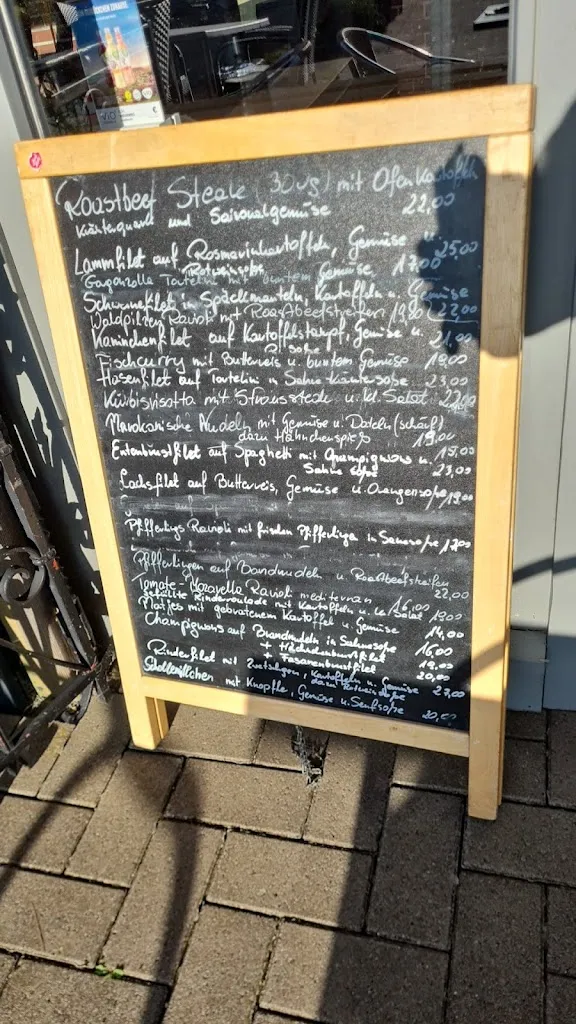 Roastbeef Steak (300g) mit Ofenkartoffeln
Kräuterquark und Saisonalgemüse 22,00
Lammfilet auf Rosmarinkartoffeln, Gemüse u.
Rotweinsoße 25,00
Tortelini mit buntem Gemüse 17,00
Schweinefilet in Speckmanteln, Kartoffeln u. Gemüse
Waldpilzen Ravioli mit Roastbeefstreifen 19,80 22,00
Kaninchenfilet auf Kartoffelstampf, Gemüse u. 21,00
Fischcurry mit Butterreis u. buntem Gemüse 19,00
Hasenfilet auf Tortelini in Sahne Kräutersoße 23,00
Kürbisrisotto mit Straussteak u. kl. Salat 22,00
Marokanische Nudeln mit Gemüse u. Dateln (scharf)
dazu Hähnchenspieß 19,00
Entenbrustfilet auf Spaghetti mit Champignons u. 15,00
Sahne soße 23,00
Lachsfilet auf Butterreis, Gemüse u. Orangensoße 19,00
Pfifferlings Ravioli mit frischen Pfifferlingen in Sahnesoße 17,00
Pfifferlingen auf Bandnudeln u. Roastbeefstreifen
22,00
Tomate-Mozarella Ravioli mediterran 16,00
gefüllte Rinderroulade mit Kartoffeln u. kl. Salat 19,00
Matjes mit gebratenem Kartoffel u. Gemüse 14,00
Champignons auf Bandnudeln in Sahnesoße 16,00
+ Hähnchenbrustfilet 19,00
+ Fasanenbrustfilet 20,00
Rinderfilet mit Zwetschgen, Kartoffeln u. Gemüse
dazu Rotweinsoße 27,00
mit Knöpfle, Gemüse u. Senfsoße 20,00